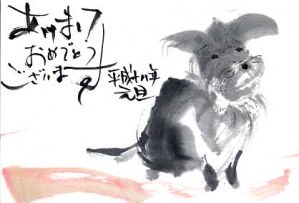 あけまして
おめでとう
ございます
平成十八年
元旦